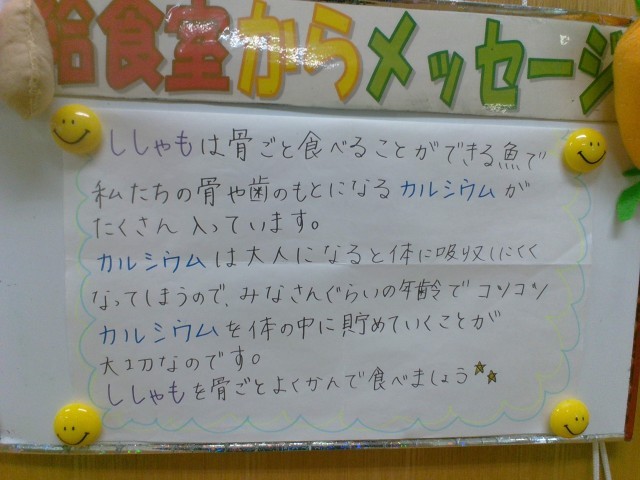 給食室からメッセージ
ししゃもは骨ごと食べることができる魚で
私たちの骨や歯のもとになるカルシウムが
たくさん入っています。
カルシウムは大人になると体に吸収しにくく
なってしまうので、みなさんぐらいの年齢でコツコツ
カルシウムを体の中に貯めていくことが
大切なのです。
ししゃもを骨ごとよくかんで食べましょう